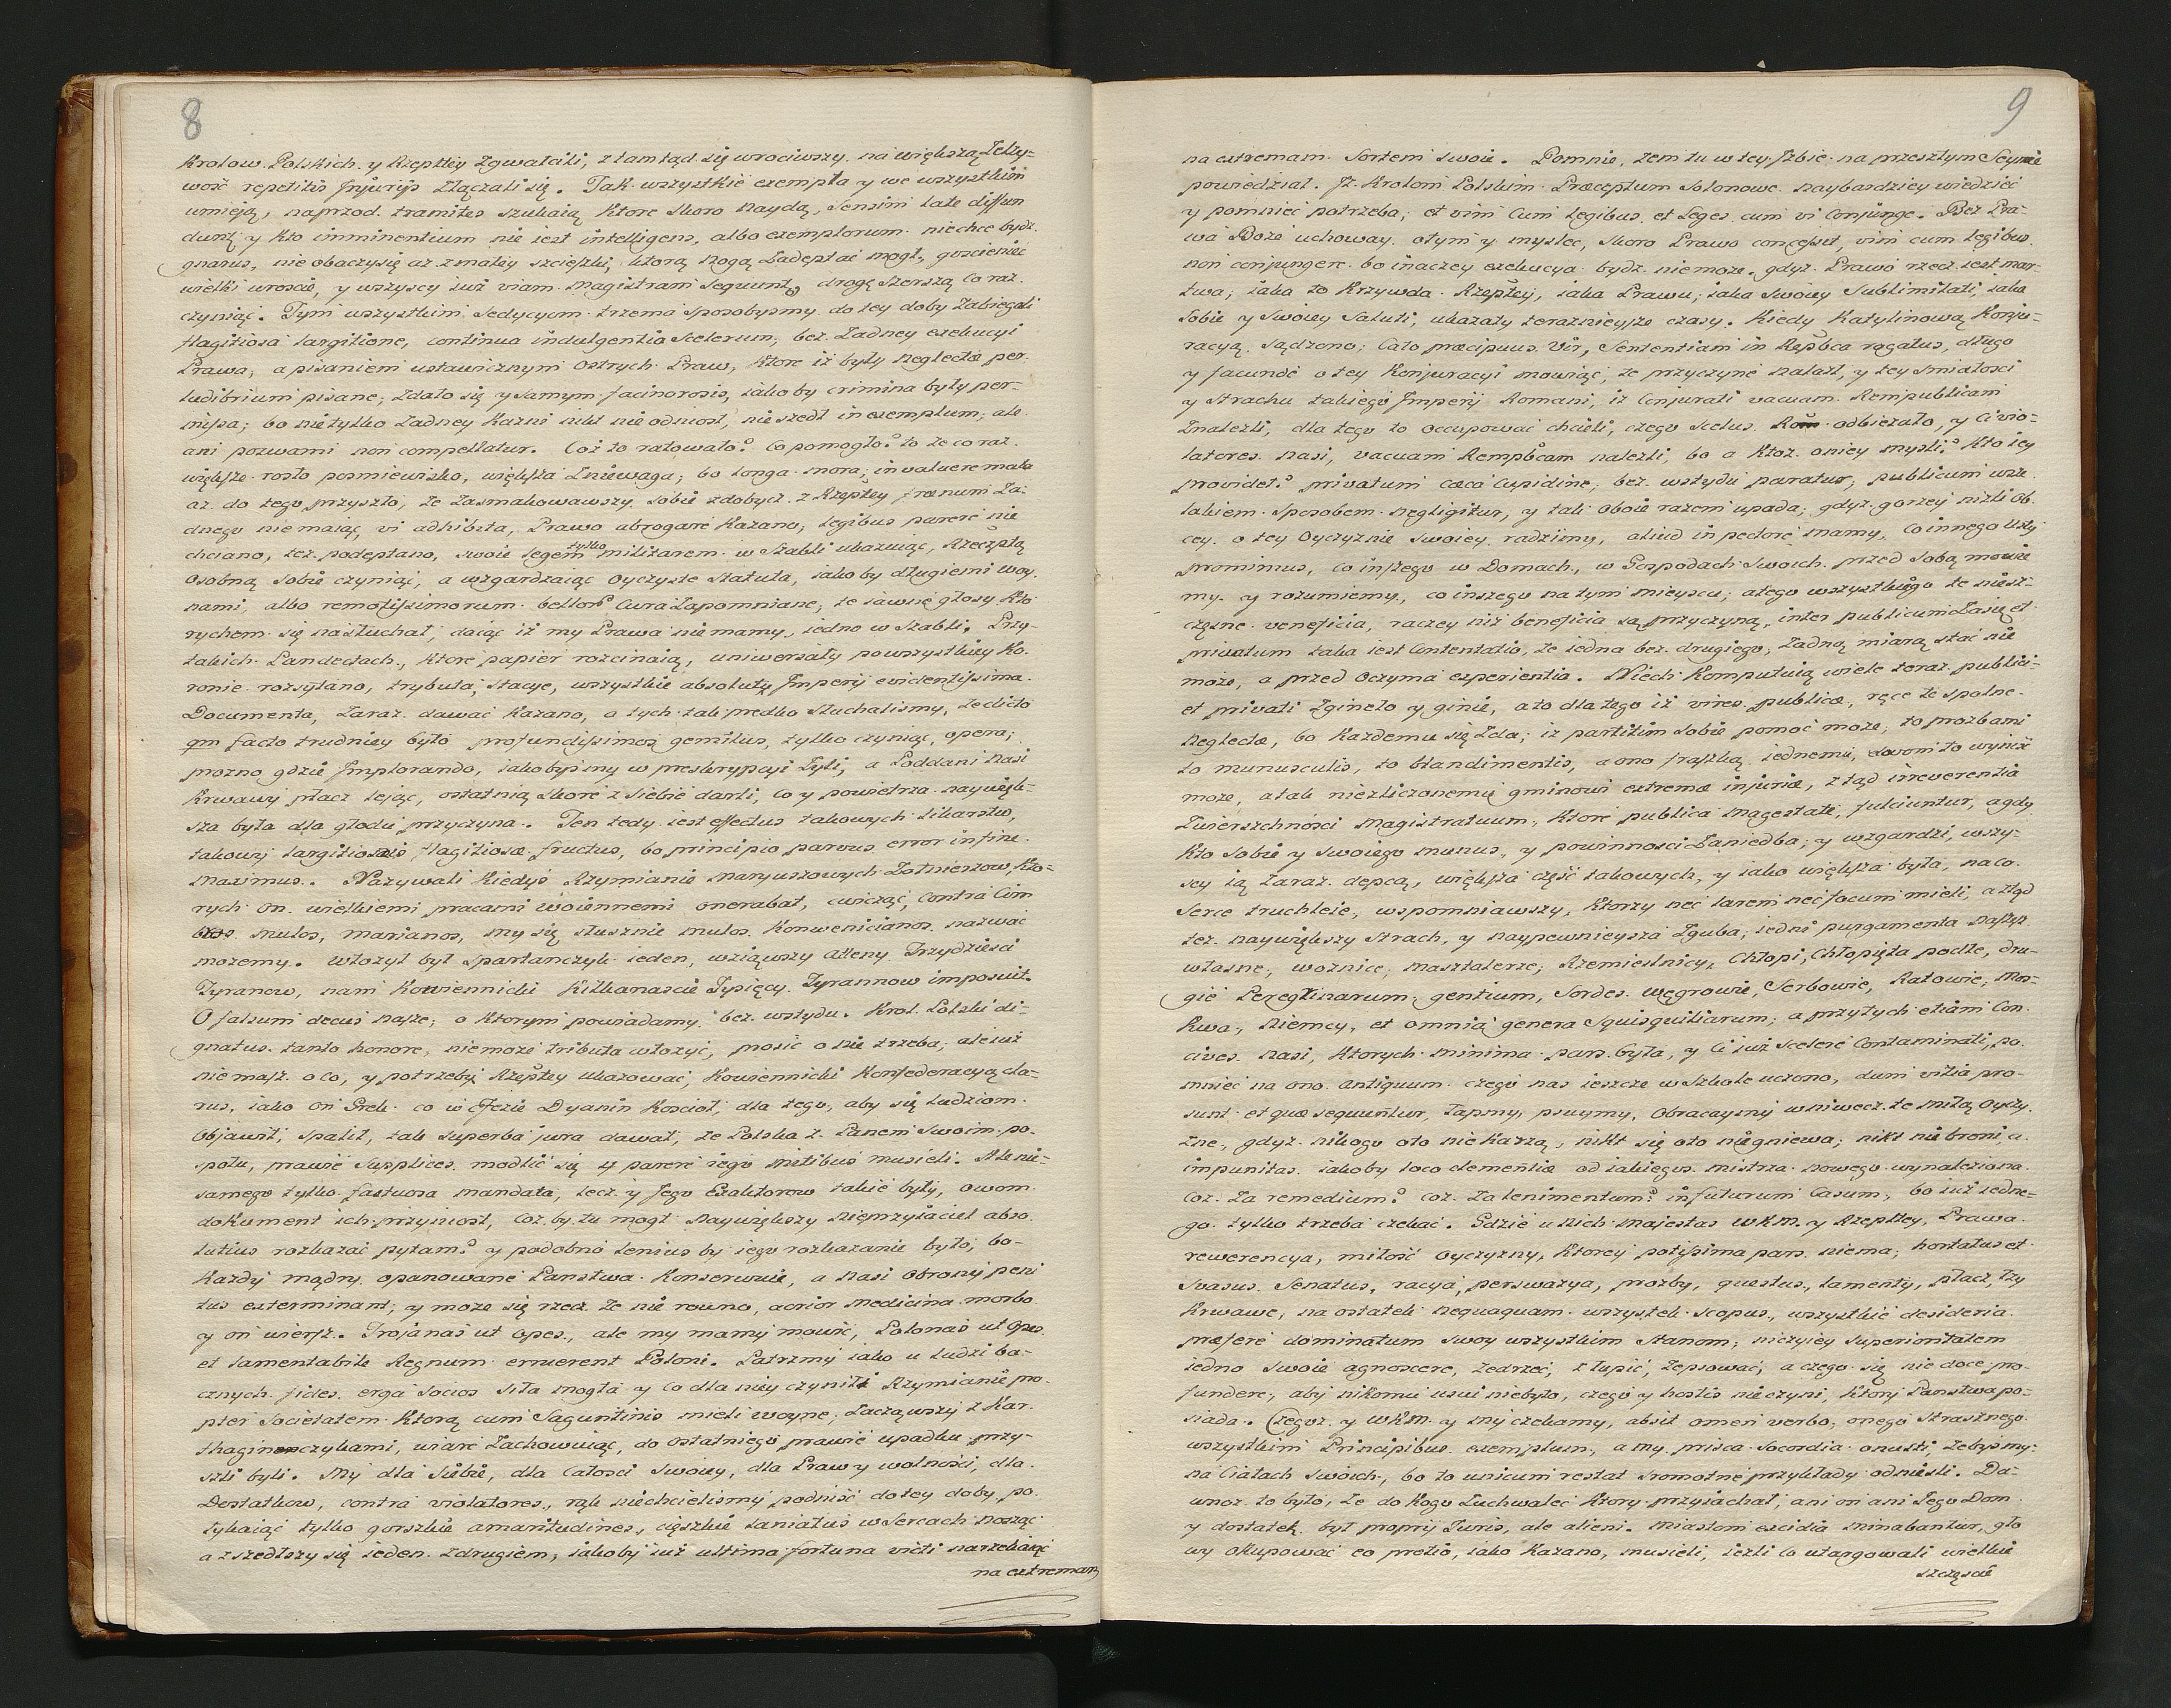 8
Krolow Polskich y Rzeptey zgwałcili, z tamtąd się wrociwszy na większą Zelży-
wość repetitis Injurijs złączali się. Tak wszystkie exempla y we wszystkim
umieją, naprzod tramites szukaią Ktore skoro naydą, sensim late diffun
dunt y Kto imminentium nie iest intelligens, albo exemplorum niechce bydz
gnarus, nie obaczy się aż z małey scieszki, ktorą nogą Zadeptać mogł, gosciniec
wielki uroscie, y wszyscy iuż viam magistram sequunt drogę szerszą co raz
czyniąc. Tym wszystkim Sedycyom trzema sposobysmy do tey doby Zabiegali
flagitiosa largitione, continua indulgentia Scelerum, bez Zadney exekucyi
Prawa, a pisaniem ustawicznym ostrych Praw, Ktore iż były neglectæ per
ludibrium pisane, zdało się y samym facinorosis, iakoby crimina były per-
missa; bo nietylko Zadney Kazni nikt nie odniosł, nie szedł in exemplum, ale
ani pozwami non compellatur. Coż to ratowało? Co pomogło? to że co raz
większe rosło posmiewisko, większa Zniewaga; bo longa mora, invaluere mala
aż do tego przyszło, że Zasmakowawszy sobie zdobycz z Rzeptey frænum Ża-
dnego niemaiąc, vi adhibita, Prawo abrogare Kazano, legibus parere nie
chciano, lecz podeptano, swoie legem tylko militarem w Szabli ukazuiąc, Rzeczptą
osobną sobie czyniąc, a wzgardzaiąc oyczyste statuta, iakoby długiemi woy
nami, albo remotissimorum bellor Cura Zapomniane, te iawne głosy Kto
rychem się nasłuchał, daiąc iż my Prawa niemamy, iedno w Szabli. Przy
takich Pandectach, ktore papier rozcinaią, uniwersały po wszystkiey Ko-
ronie rozsyłano, trybuta, stacye, wszystkie absoluty Imperij evidentissima
Documenta, Zaraz dawać Kazano, a tych tak prędko słuchalismy, że dicto
qm facto trudniey było profundissimos gemitus, tylko czyniąc, opera,
prozno gdzie Implorando, iakobysmy w preskrypcyi żyli, a Poddani nasi
Krwawy płacz leiąc, ostatnią skorę z siebie darli, co y powietrza naywięk-
sza była dla głodu przyczyna. Ten tedy iest effectus takowych likarstw,
takowy largitionis flagitiosæ fructus, bo principio parvus error in fine
maximus. Nazywali Kiedyś Rzymianie maryuszowych Żołnierzow, Kto-
rych on wielkiemi pracami woiennemi onerabat, cwicząc, contra Cim
bros mulos, marianos, my się słusznie mulos Konwenicianos nazwać
możemy. Włozył był Spartanczyk ieden, wziąwszy Atheny Trzydziesci
Tyranow, nam Kowiennicki Kilkanascie Tysięcy Tyrannow imposuit.
O falsum decus nasze, o Ktorym powiadamy bez wstydu. Krol Polski di-
gnatus tanto honore, niemoże tributa włożyć, prosić o nie trzeba, ale iuż
niemasz o co, y potrzeby Rzeptey ukazować, Kowiennicki Konfederacyą cla-
rus, iako on Grek co w Efezie Dyanin Koscioł, dla tego, aby się ludziom
objawił, spalił, tak superba jura dawał, że Polska z Panem swoim po-
społu, prawie Supplices modlić się y parere iego mitibus musieli. Ale nie
samego tylko fastuosa mandata, lecz y Jego Exaktorow takie były, owom
dokument ich przyniosł, coż by tu mogł naywiększy nieprzyiaciel abso
lutius rozkazać pytam? y podobno lenius by iego rozkazanie było, bo
każdy mądry opanowane Panstwa Konserwuie, a nasi obrony peni
tus exterminant, y może się rzec że nie rowno, acrior medicina morbo
y on wiersz. Trojanas ut opes, ale my mamy mowić, Polonas ut opes
et lamentabile Regnum eruerent Poloni. Patrzmy iako u ludzi ba-
cznych fides erga socios siła mogła y co dla niey czynili Rzymianie pro-
pter Societatem Ktorą cum Saguntinis mieli woynę, zacząwszy z Kar-
thaginczykami, wiarę Zachowuiąc, do ostatniego prawie upadku przy-
szli byli. My dla siebie, dla całosci swoiey, dla Praw y wolności, dla
Dostatkow, contra violatores, rąk niechcielismy podnisć do tey doby po
tykaiąc tylko gorzkie amaritudines, cięszkie laniatus w Sercach nosząc
a zszedłszy się ieden z drugiem, iakoby iuż ultima fortuna victi narzekaiąc
na extremam
9
na extremam Sortem swoie. Pomnie, żem tu w tey Izbie na przeszłym Seymie
powiedział. Iż Krolom Polskim Præceptum Solonowe naybardziey wiedzieć
y pomnieć potrzeba, et vim cum legibus et Leges cum vi Conjunge. Bez Pra-
wa Boże uchoway o tym y myslec, skoro Prawo concessit, vim cum legibus
non conjungere bo inaczey exekucya bydz niemoże, gdyż Prawo rzecz iest mar-
twa, iaka to Krzywda Rzeptey, iaka Prawu, iaka swoiey Sublimitati, iaka
sobie y swoiey Saluti, ukazały teraznieysze czasy. Kiedy Katylinową Konju-
racyą sądzono, Cato præcipuus Vir, Sententiam in Repbca rogatus, długo
y facunde o tey Konjuracyi mowiąc, te przyczynę nalazł, y tey smiałosci
y strachu takiego Imperij Romani, iż Conjurati vacuam Rempublicam
Znalezli, dla tego to occupować chcieli, czego Scelus Rom odbierało, y Ci vio-
latores nasi, vacuam Rempbcam nalezli, bo a Ktoż oniey mysli? Kto iey
providet? privatum cæca Cupidine, bez wstydu paratur, publicum wsze
lakiem sposobem negligitur, y tak oboie razem upada; gdyż gorzey niżli Ob
cey o tey Oyczyznie swoiey radzimy, aliud in pectore mamy, co innego usty
prominus, co inszego w Domach, w Gospodach swoich przed sobą mowie
my y rozumiemy, co inszego na tym mieyscu, a tego wszystkiego te niesz-
częsne veneficia, raczey niż beneficia są przyczyną, inter publicum Zasię et
privatum taka iest Contentatio, że iedna bez drugiego, Zadną miarą stać nie
może, a przed oczyma experientia. Niech Komputuią wiele teraz publici-
et privati Zgineło y ginie, a to dla tego iż vires publicæ, ręce te spolne
neglectæ, bo Każdemu się Zda, iż partitim sobie pomoć może, to prozbami
to munusculis, to blandimentis, a ono fraszką iednemu, dwom to wyniść
może, a tak niezliczonemu gminowi extremæ injuriæ, z tąd irreverentia
Zwierzchnosci Magistratuum, Ktore publica magestate, fulciuntur, a gdy
Kto sobie y swoiego munus, y powinnosci Zaniedba, y wzgardzi, wszy-
scy ią Zaraz depcą, większa część takowych, y iako większa była, na co
Serce truchleie, wspomniawszy, Ktorzy nec larem nec focum mieli, a ztąd
też naywiększy strach, y naypewnieysza Zguba, iedni purgamenta naszeż
własne, woznice, masztalerze, Rzemieslnicy, Chłopi, Chłopięta podłe, dru-
gie Peregrinarum gentium, Sordes węgrowie, Serbowie, Ratowie, Mos-
kwa, Niemcy, et omnia genera Squisquiliarum, a przy tych etiam Con
cives nasi, Ktorych minima pars była, y Ci iuż Scelere Contaminati, po
mnieć na ono antiquum czego nas ieszcze w Szkole uczono, dum vitia pro-
sunt et quæ sequuntur, łapmy, psuymy, obracaymy w niwecz te miłą Oyczy
znę, gdyż nikogo oto nie karzą, nikt się oto niegniewa, nikt nie broni, a
impunitas iakoby loco clementiæ od iakiegoś mistrza nowego wynaleziona
Coż Za remedium? coż Za lenimentum? in futurum Casum, bo iuż iedne-
go tylko trzeba czekać. Gdzie u nich majestas WKM. y Rzeptey, Prawa
rewerencya, miłość oyczyzny, Ktorey potissima pars niema, hortatus et
Svasus Senatus, racyia, perswazya, prozby, questus, lamenty, płacz, łzy
Krwawe, na ostatek nequaquam wszystek scopus, wszystkie desideria
præfere dominatum swoy wszystkim stanom, niczyiey Superioritatem
iedno swoie agnoscere, Zedrzeć, złupić, Zepsować, a czego się nie doce pro-
fundere, aby nikomu usui niebyło, czego y hostis nieczyni, Ktory Panstwa po-
siada. Czegoż y WKM. y my czekamy, absit omen verbo, onego strasznego
wszystkim Principibus exemplum, a my prisca socordia onusti, żebysmy
na ciałach swoich, bo to unicum restat sromotne przykłady odniesli. Da-
wnoż to było, że do Kogo Zuchwalec Ktory przyiachał, ani on ani Jego Dom
y dostatek był proprij Juris, ale alieni. Miastom excidia minabantur, gło
wy okupować eo pretio, iako Kazano, musieli, iezli co utargowali wielkie
szczęscie